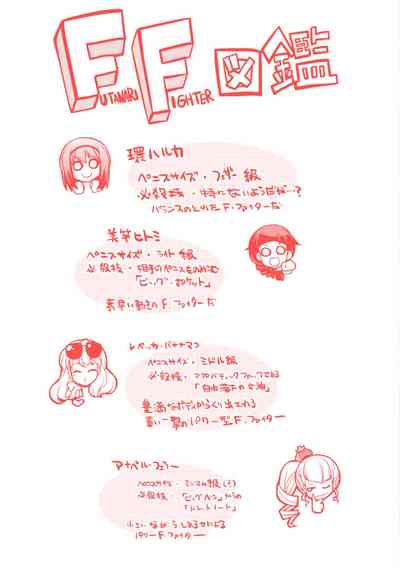 FUTANARI FIGHTER 図鑑
環ハルカ
ペニスサイズ・フェザー級
必殺技・特にないようだが…?
バランスのとれたF.ファイターだ
美竿ヒトミ
ペニスサイズ・ライト級
必殺技・相手のペニスをのみこむ
「ビッグ・ポケット」
素早い動きのF.ファイターだ
レベッカ・バナナマン
ペニスサイズ・ミドル級
必殺技・アクロバティックファックである
「自由落下の女神」
豊満なボディからくり出される
重い一撃のパワー型F.ファイター
アナベル・フェラー
ペニスサイズ・ミニマム級(?)
必殺技・「ビッグペン」からの
パワーF.ファイター